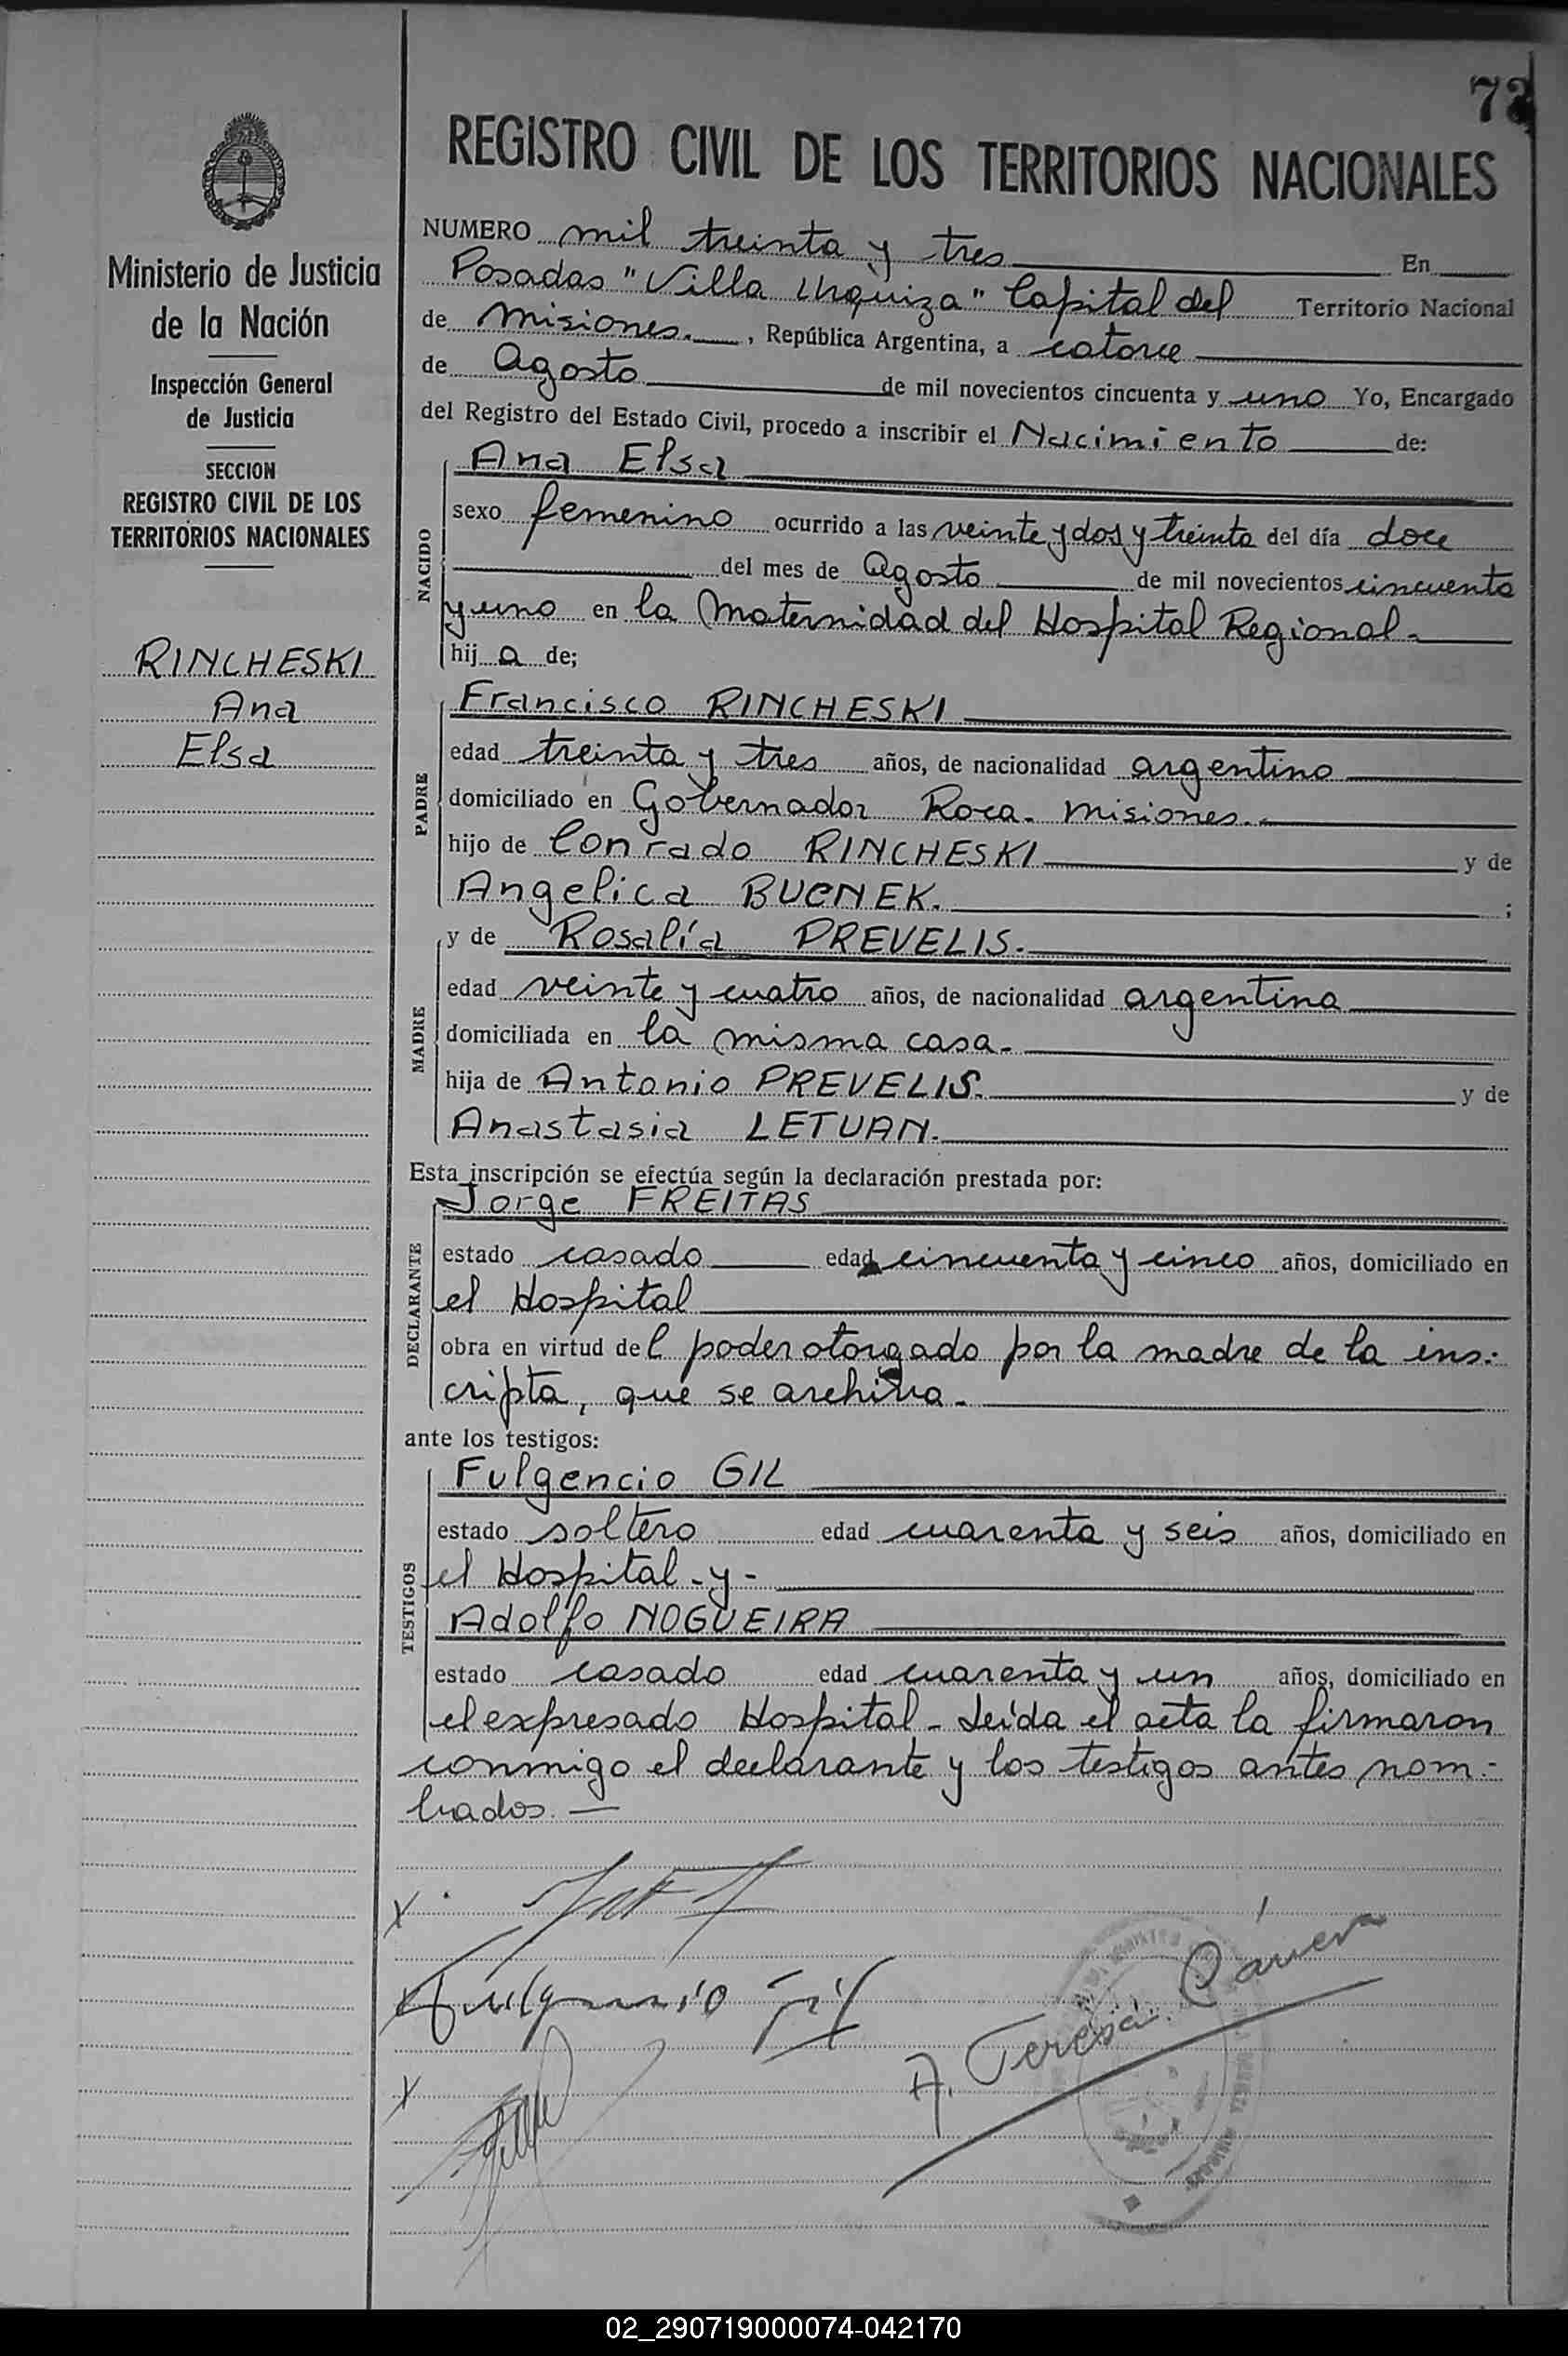 73
REGISTRO CIVIL DE LOS TERRITORIOS NACIONALES
Ministerio de Justicia
de la Nación
Inspección General
de Justicia
SECCION
REGISTRO CIVIL DE LOS
TERRITORIOS NACIONALES
RINCHESKI
Ana
Elsa
NUMERO mil treinta y tres En
Posadas "Villa Urquiza" Capital del Territorio Nacional
de Misiones. , República Argentina, a catorce
de Agosto de mil novecientos cincuenta y uno Yo, Encargado
del Registro del Estado Civil, procedo a inscribir el Nacimiento de:
NACIDO
Ana Elsa
sexo femenino ocurrido a las veinte y dos y treinta del día doce
del mes de Agosto de mil novecientos cincuenta
y uno en la Maternidad del Hospital Regional.
hij a de;
PADRE
Francisco RINCHESKI
edad treinta y tres años, de nacionalidad argentino
domiciliado en Gobernador Roca. Misiones.
hijo de Conrado RINCHESKI y de
Angelica BUCNEK. ;
MADRE
y de Rosalía PREVELIS.
edad veinte y cuatro años, de nacionalidad argentina
domiciliada en la misma casa.
hija de Antonio PREVELIS. y de
Anastasia LETUAN.
Esta inscripción se efectúa según la declaración prestada por:
DECLARANTE
Jorge FREITAS
estado casado edad cincuenta y cinco años, domiciliado en
el Hospital
obra en virtud del poder otorgado por la madre de la ins:
cripta, que se archiva.
ante los testigos:
TESTIGOS
Fulgencio GIL
estado soltero edad cuarenta y seis años, domiciliado en
el Hospital - y -
Adolfo NOGUEIRA
estado casado edad cuarenta y un años, domiciliado en
el expresado Hospital - Leída el acta la firmaron
conmigo el declarante y los testigos antes nom:
brados. —
x
Fulgencio Gil
x
A. Teresa
02_290719000074-042170